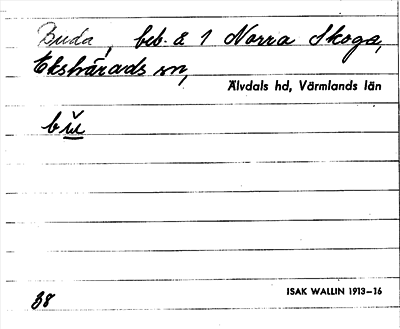 Buda, beb. å 1 Norra Skoga,
Ekshärads sn,
Älvdals hd, Värmlands län
ISAK WALLIN 1913–16
38